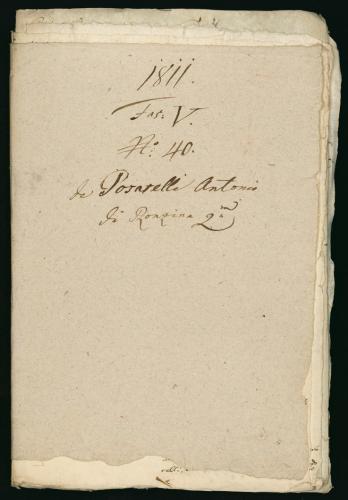 1811.
Fas: V.
No: 40.
de Posarelli Antonio
di Ronzina